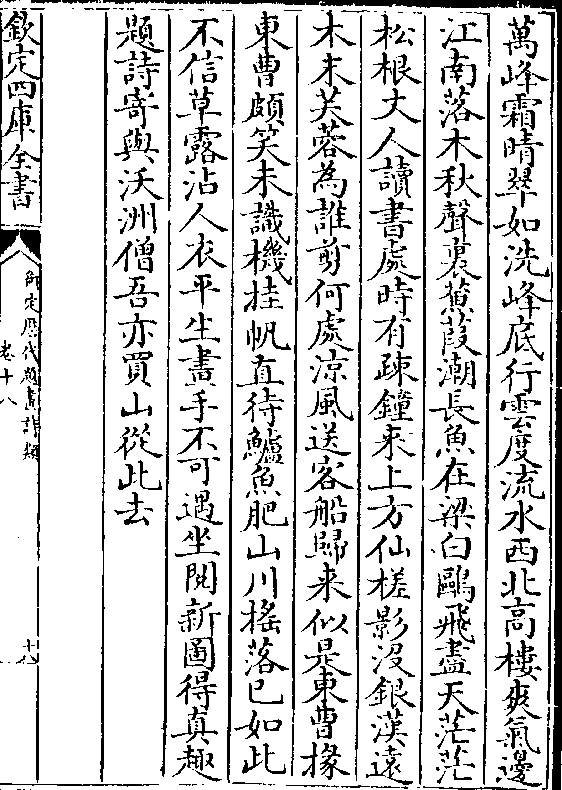 萬峰霜晴翠如洗峰底行雲度流水西北高樓爽氣邊
江南落木秋聲裏蒹葭潮長魚在梁白鷗飛盡天茫茫
松根丈人讀書處時有疎鐘來上方仙槎影沒銀漢遠
木末芙蓉為誰剪何處涼風送客船歸來似是東曹掾
東曹頗笑未識機挂帆直待鱸魚肥山川搖落已如此
不信草露沾人衣平生畫手不可遇坐閱新圖得真趣
題詩寄與沃洲僧吾亦買山從此去
欽定四庫全書
御定歷代題畫詩類
卷十八
十八